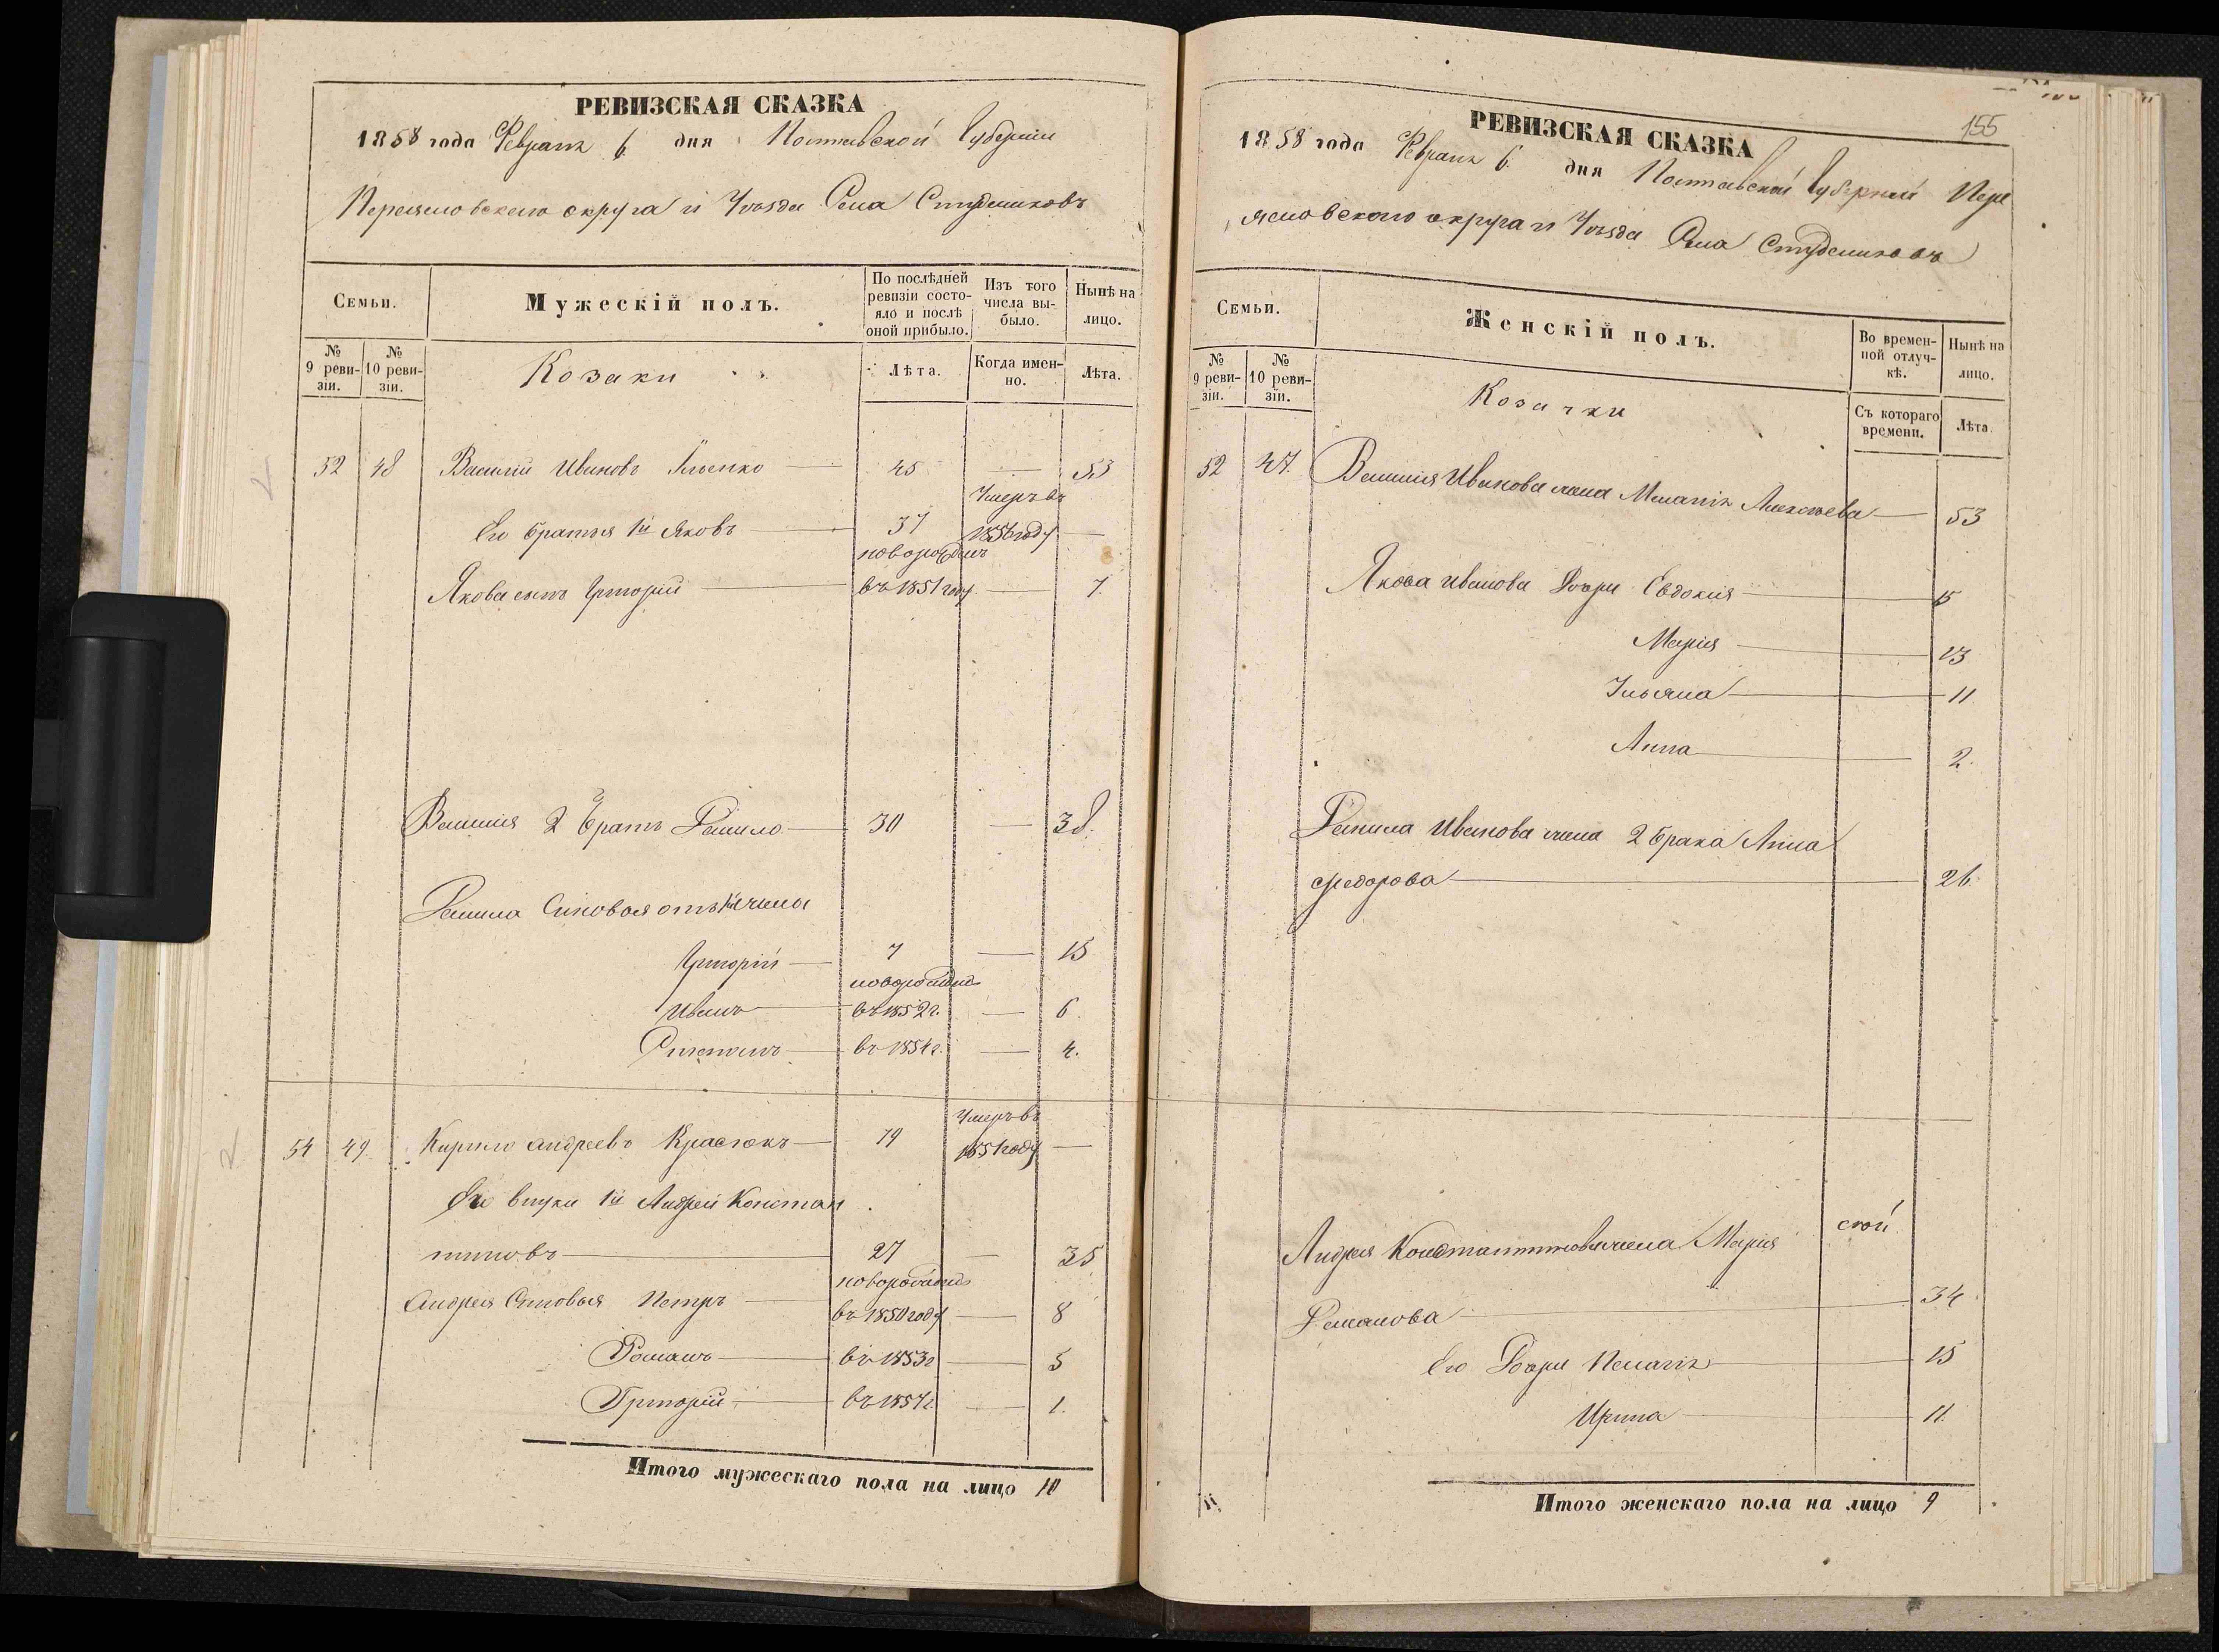 РЕВИЗСКАЯ СКАЗКА
1858 года Февраля 6. дня Полтавской Губернии
Переясловского округа и Уѣзда Села Студениковъ
Семьи.
Мужескій полъ.
По послѣдней ревизіи состояло и послѣ оной прибыло.
Изъ того числа выбыло.
Нынѣ на лицо.
№ 9 ревизіи.
№ 10 ревизіи.
Козаки
Лѣта.
Когда именно.
Лѣта.
52 48 Василій Ивановъ 45 — 53
Умеръ въ
Его братья 1й Яковъ 37 1856 году —
новорожденъ
Якова сынъ Григорій въ 1851 году — 7.
Василія 2й братъ Данило 30 — 38.
Данила Сыновья отъ 1й жены
Григорій 7 — 15
новорожденъ
Иванъ въ 1852 г. — 6.
въ 1854 г. — 4.
Умеръ въ
54 49. Кирило Андреевъ Красюкъ 79 1851 году —
Его внуки 1й Андрей Констан
тиновъ 27 — 35
новорожденъ
Андрея Сыновья Петръ въ 1850 году — 8
Романъ въ 1853 г — 5
Григорій въ 1857 г — 1.
Итого мужескаго пола на лицо 10
155
РЕВИЗСКАЯ СКАЗКА
1858 года Февраля 6. дня Полтавской Губерніи Пере
ясловского округа и Уѣзда Села Студениковъ
Семьи.
Женскій полъ.
Во временной отлучкѣ.
Нынѣ на лицо.
№ 9 ревизіи.
№ 10 ревизіи.
Козачки
Съ котораго времени.
Лѣта.
52 47. Василія Иванова жена Меланія Алексѣева — 53
Якова Иванова Дочери Евдокия 15
Марія 13
Ульяна 11
Анна 2.
Данила Иванова жена 2 брака Анна
Федорова 26.
Андрея Константинова жена Марія
Романова 34
Его Дочери Пелагія 15
Ирина 11.
Итого женскаго пола на лицо 9